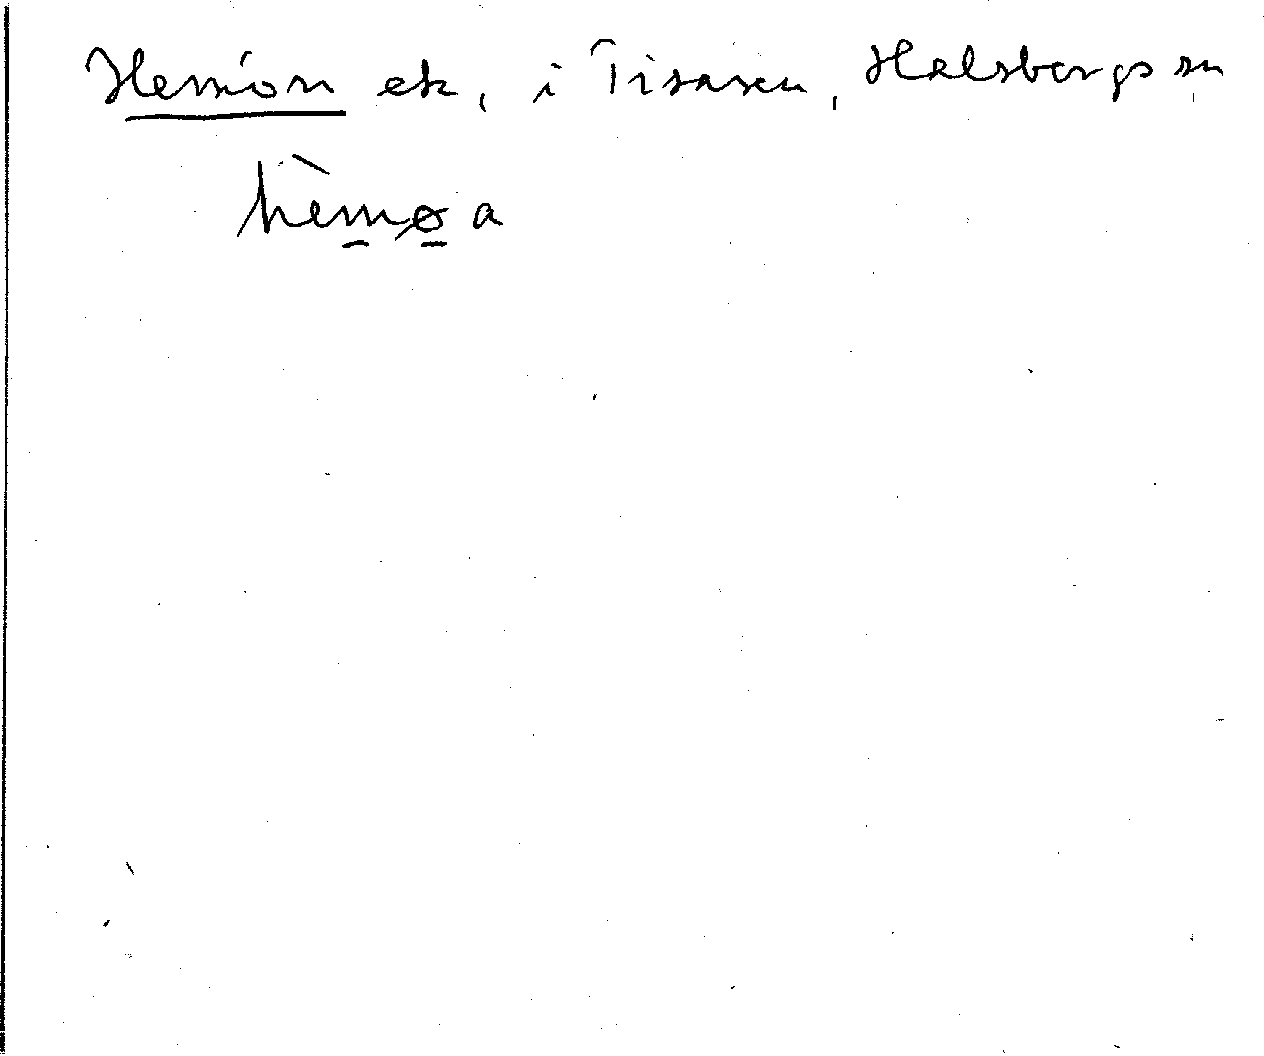 Hemön ek, i Tisaren, Halsbergs sn
hèmø a